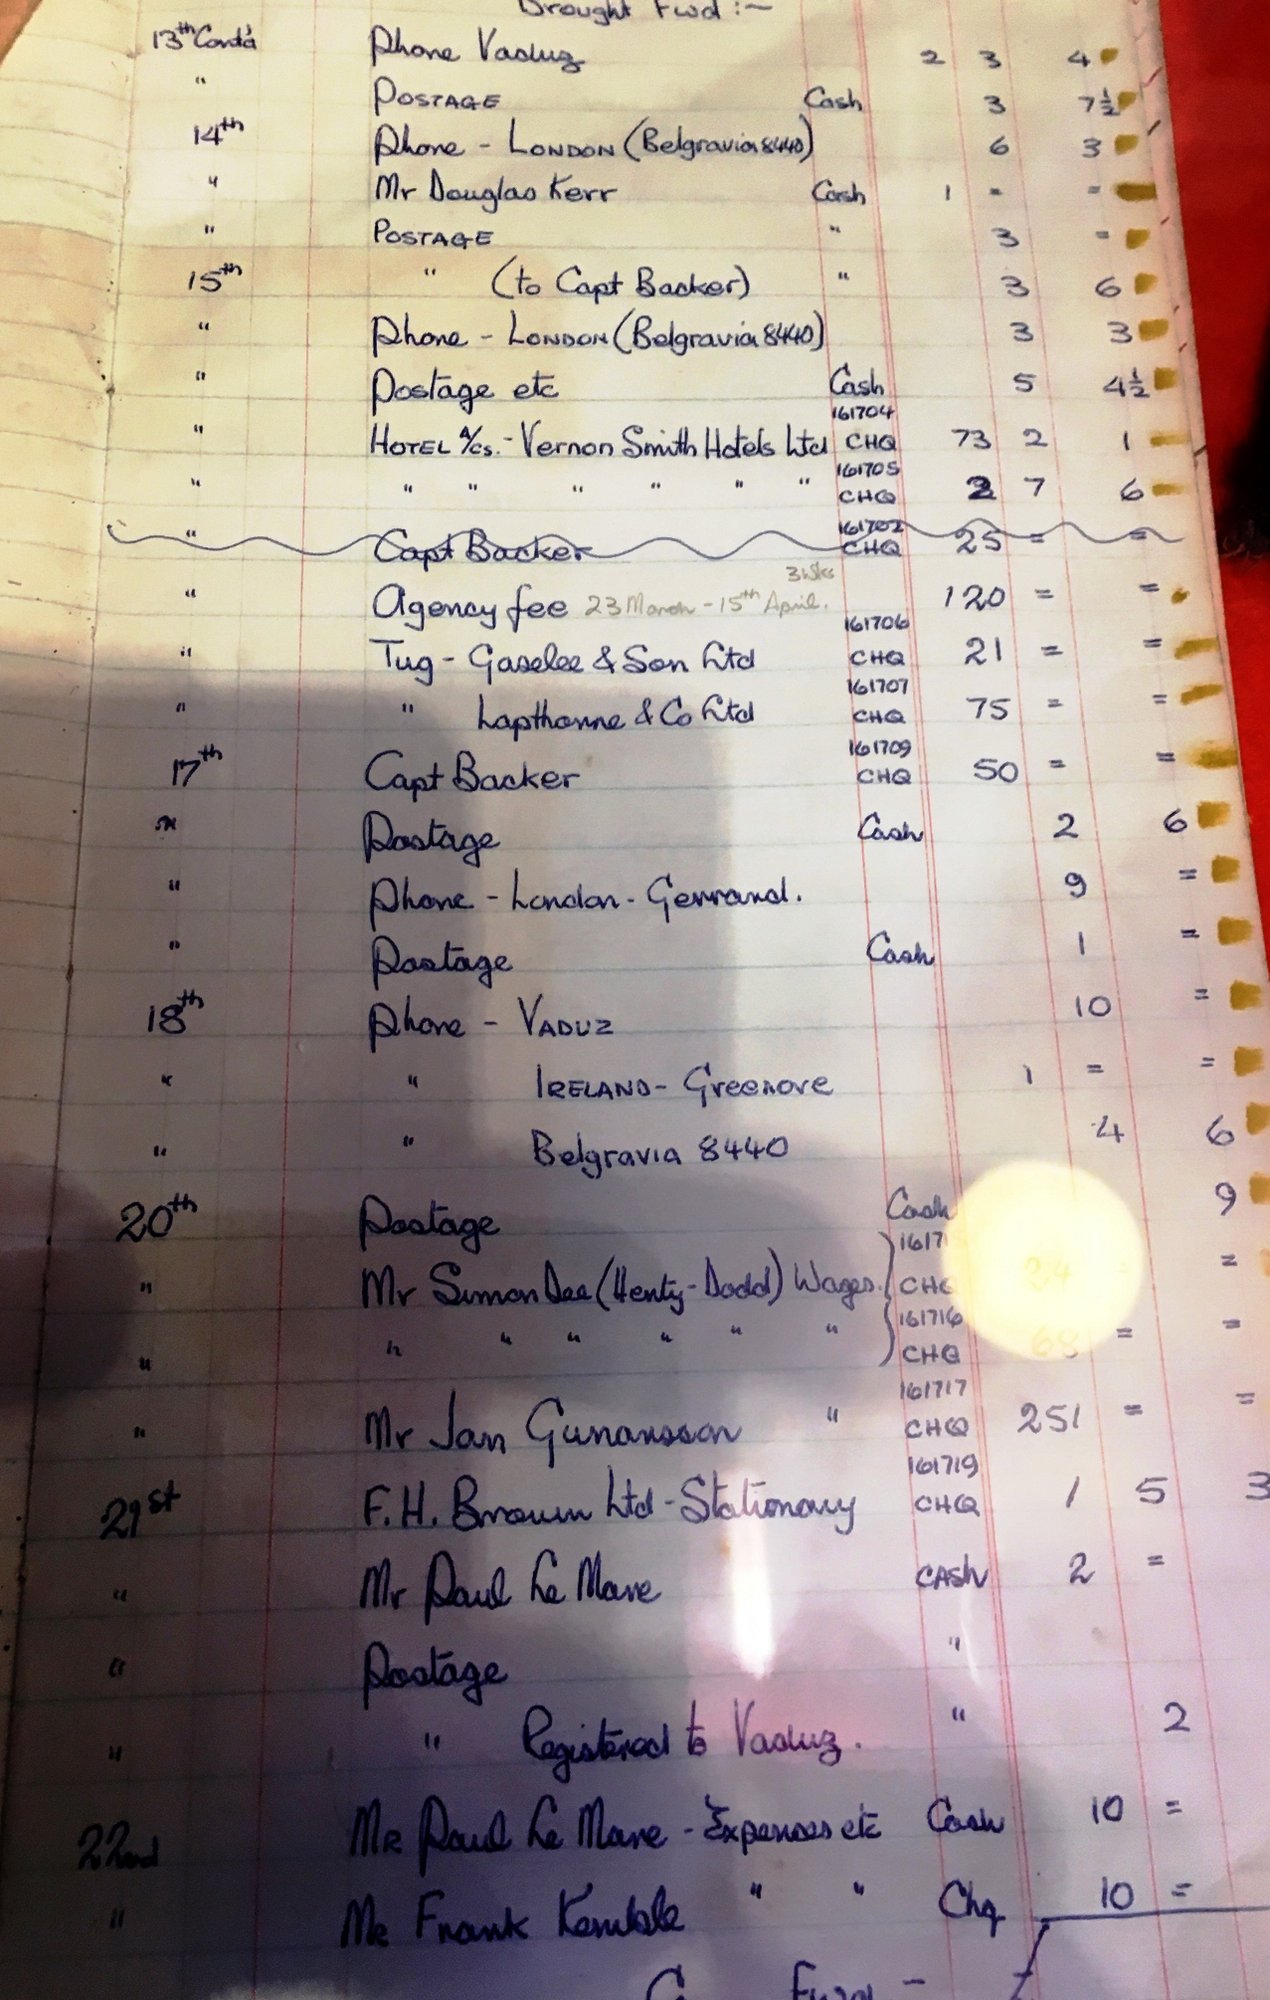 Brought Fwd :-
13th Contd Phone Vaduz 2 3 4
" POSTAGE Cash 3 7½
14th Phone - LONDON (Belgravia 8440) 6 3
" Mr Douglas Kerr Cash 1 = =
" POSTAGE " 3 =
15th " (to Capt Backer) " 3 6
" Phone - LONDON (Belgravia 8440) 3 3
" Postage etc Cash 5 4½
161704
" HOTEL A/Cs. - Vernon Smith Hotels Ltd CHQ 73 2 1
161705
" " " " " " " CHQ 2 7 6
161702
" Capt Backer CHQ 25 = =
3 wks
" Agency fee 23 March - 15th April. 120 = =
161706
" Tug - Gaselee & Son Ltd CHQ 21 = =
161707
" " Lapthorne & Co Ltd CHQ 75 = =
161709
17th Capt Backer CHQ 50 = =
" Postage Cash 2 6
" Phone - London - Gerrard. 9 =
" Postage Cash 1 =
18th Phone - VADUZ 10 =
" " IRELAND - Greenore 1 = =
" " Belgravia 8440 4 6
20th Postage Cash 9
" Mr Simon Dee (Henty-Dodd) Wages. CHQ 24 =
161716
" " " " " " " CHQ 68 = =
161717
" Mr Jan Gunarsson " CHQ 251 = =
161719
21st F.H. Brown Ltd - Stationary CHQ 1 5 3
" Mr Paul Le Mare CASH 2 =
" Postage "
" " Registered to Vaduz. " 2
22nd Mr Paul Le Mare - Expenses etc Cash 10 =
" Mr Frank Kemble " " Chq 10 =